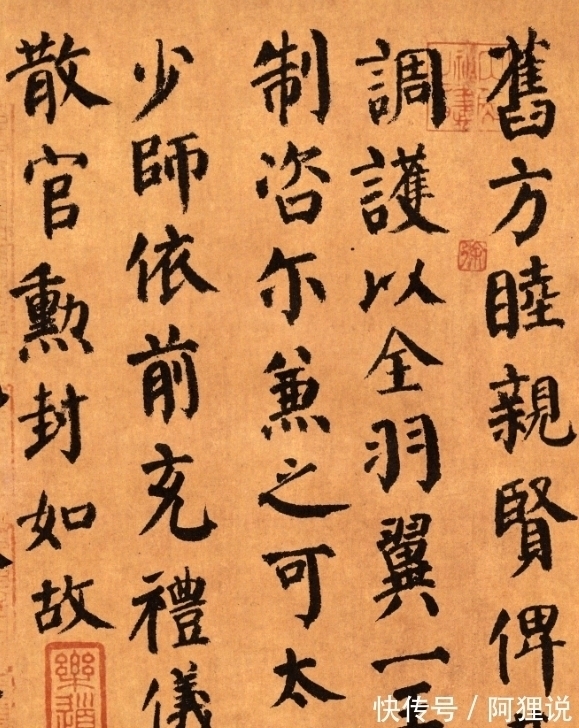 舊方睦親賢俾
調護以全羽翼一
制咨尔兼之可太
少師依前充禮儀
散官勳封如故
快传号 / 阿狸说